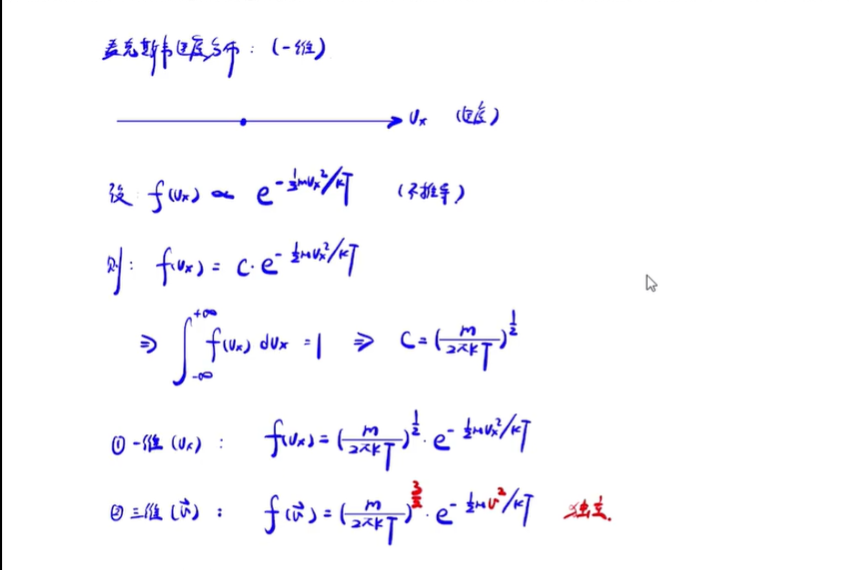 麦克斯韦速度分布：(一维)
vₓ (速度)
设 f(vₓ) ∝ e^{-½mvₓ²/kT} (不推导)
则: f(vₓ) = C·e^{-½mvₓ²/kT}
⇒ ∫_{-∞}^{+∞} f(vₓ) dvₓ = 1 ⇒ C = (m/2πkT)^{½}
① 一维 (vₓ)： f(vₓ) = (m/2πkT)^{½}·e^{-½mvₓ²/kT}
② 三维 (v⃗)： f(v⃗) = (m/2πkT)^{3/2}·e^{-½mv²/kT} 独立.